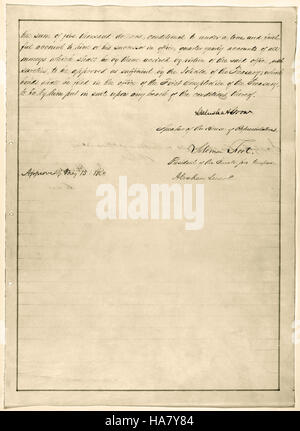 the sum of five thousand dollars, conditioned to render a true and faith
ful account to him or his successor in office, quarter yearly accounts of all
moneys which shall be by them received by virtue of the said office, with
sureties, to be approved as sufficient by the Solicitor of the Treasury; which
bonds shall be filed in the office of the First Comptroller of the Treasury,
to be by him put in suit upon any breach of the conditions thereof.
Galusha A Grow
Speaker of the House of Representatives.
Solomon Foot
President of the Senate pro tempore.
Approved, May 15. 1862
Abraham Lincoln
alamy
a
a
a
alamy
Image ID: HA7Y84
www.alamy.com